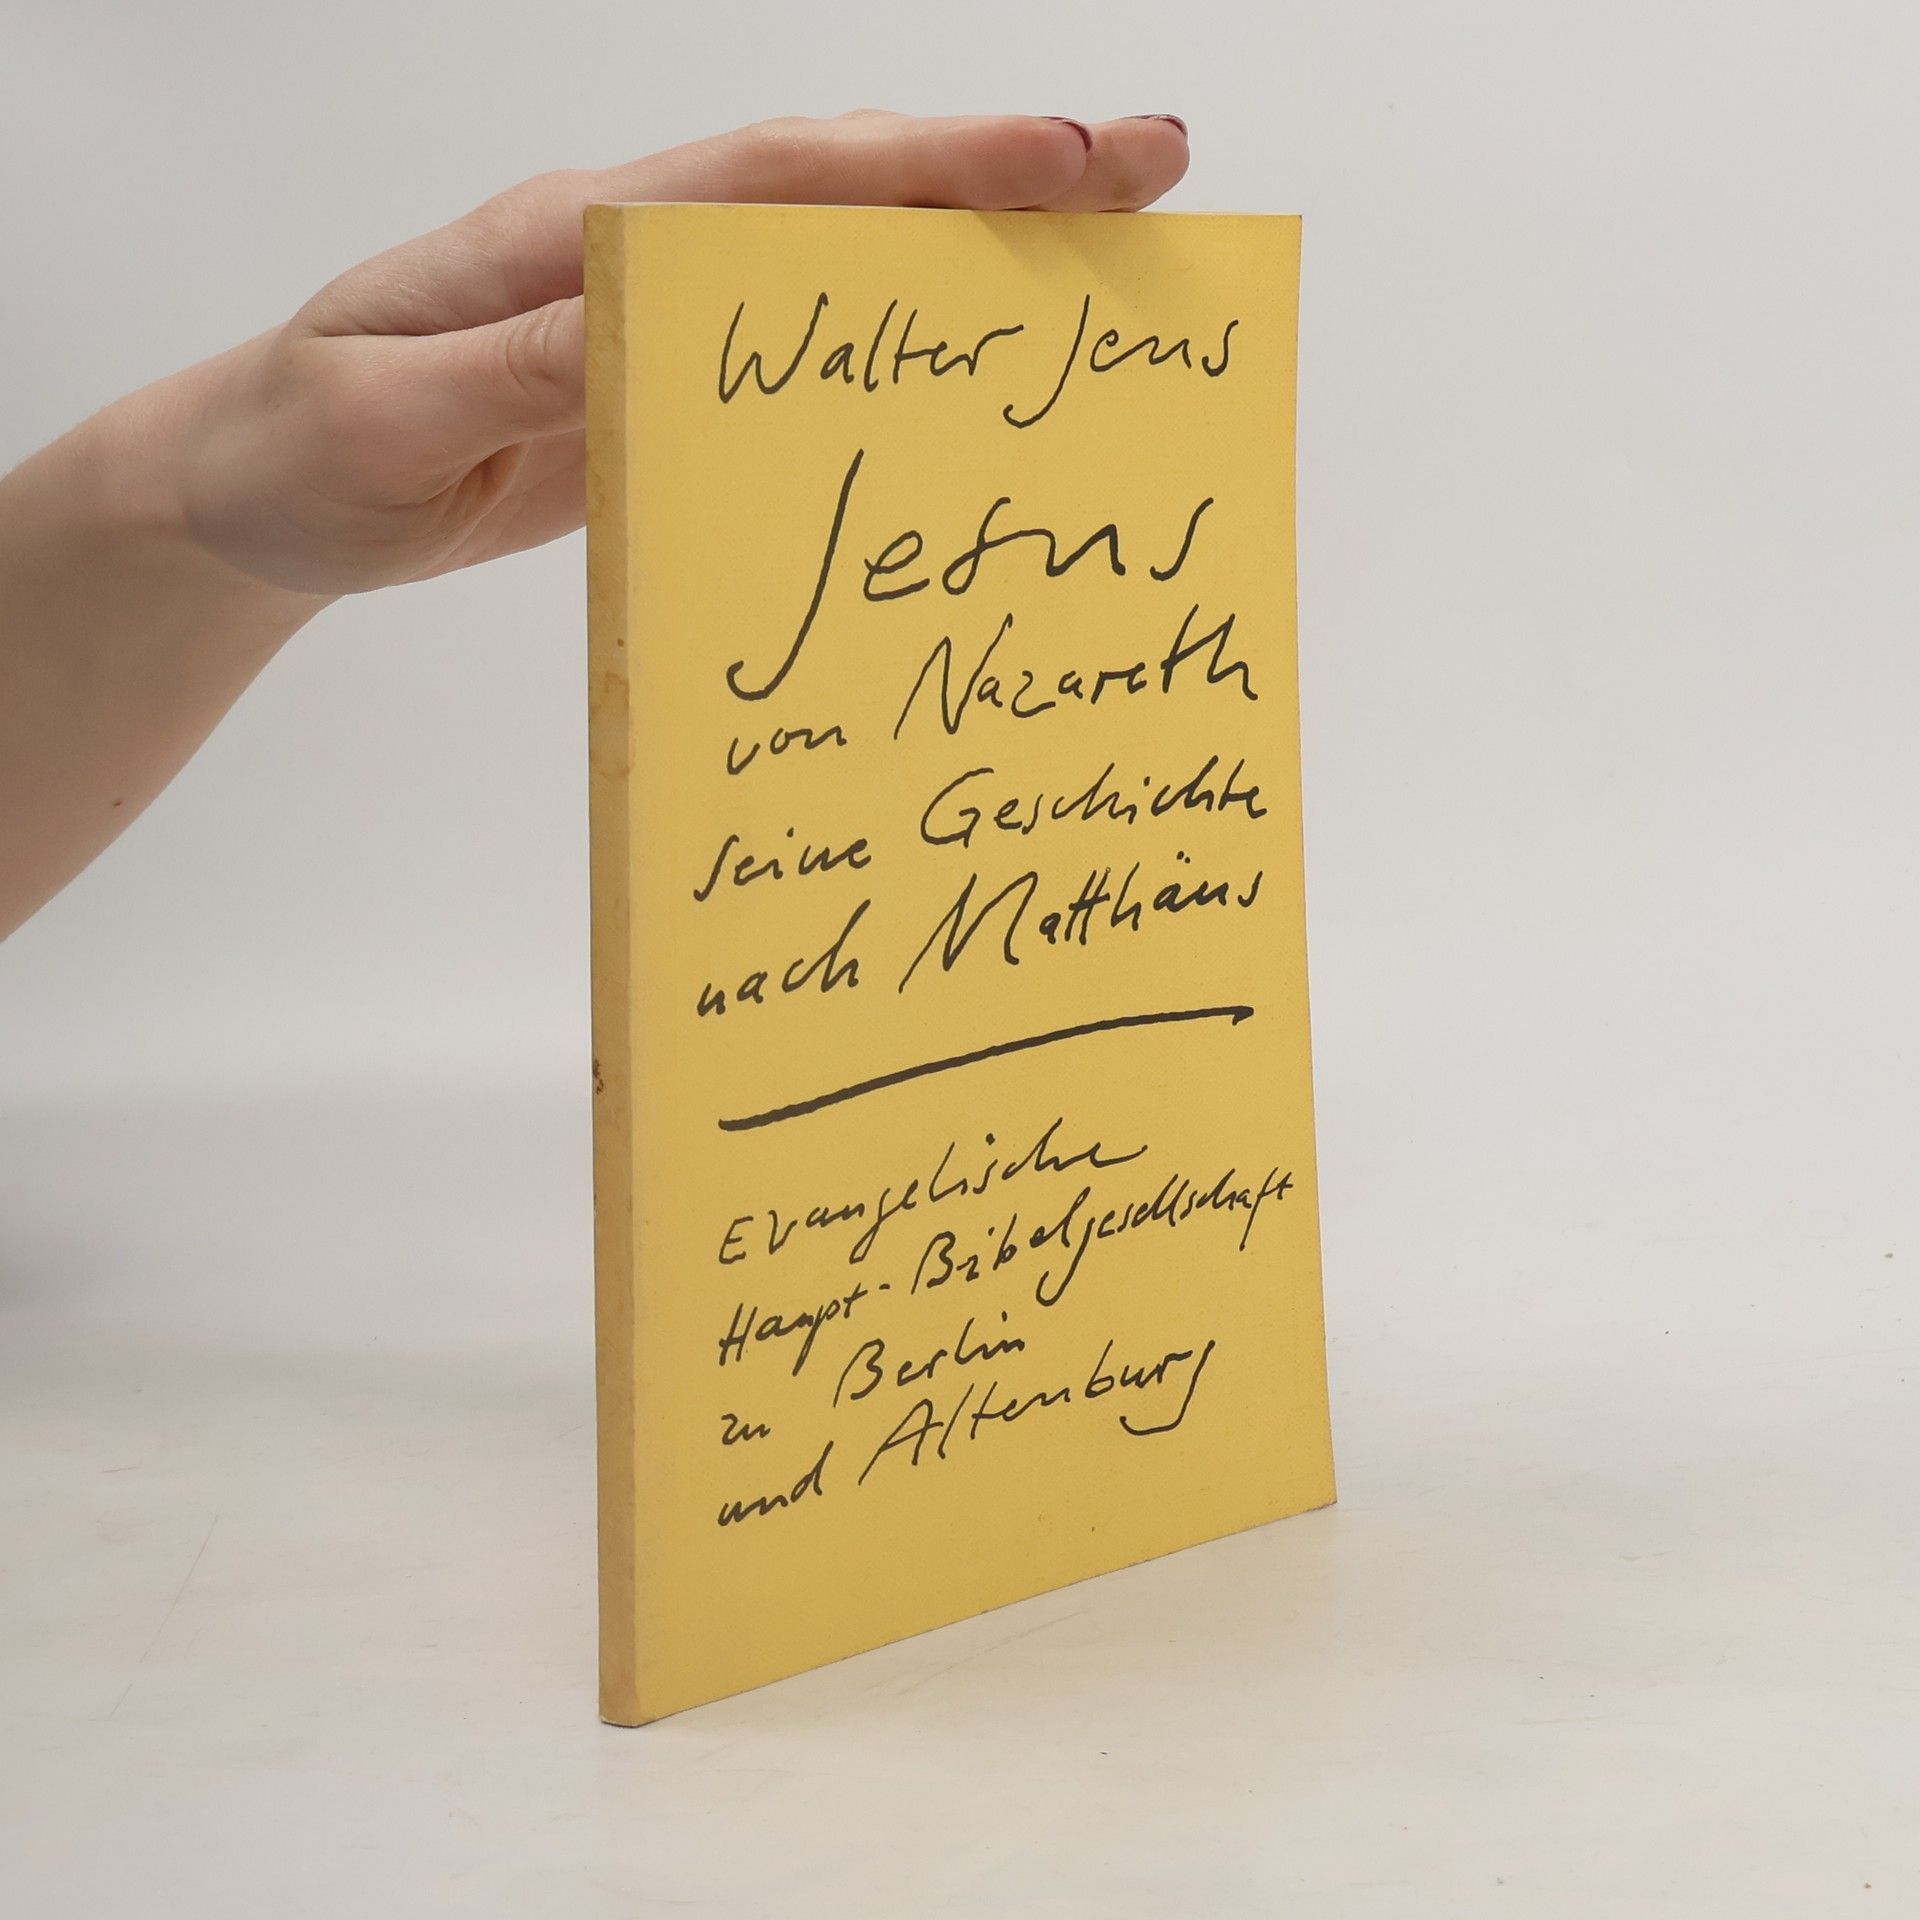 Walter Jens
Jesus
von Nazareth
seine Geschichte
nach Matthäus
Evangelische
Haupt-Bibelgesellschaft
zu Berlin
und Altenburg